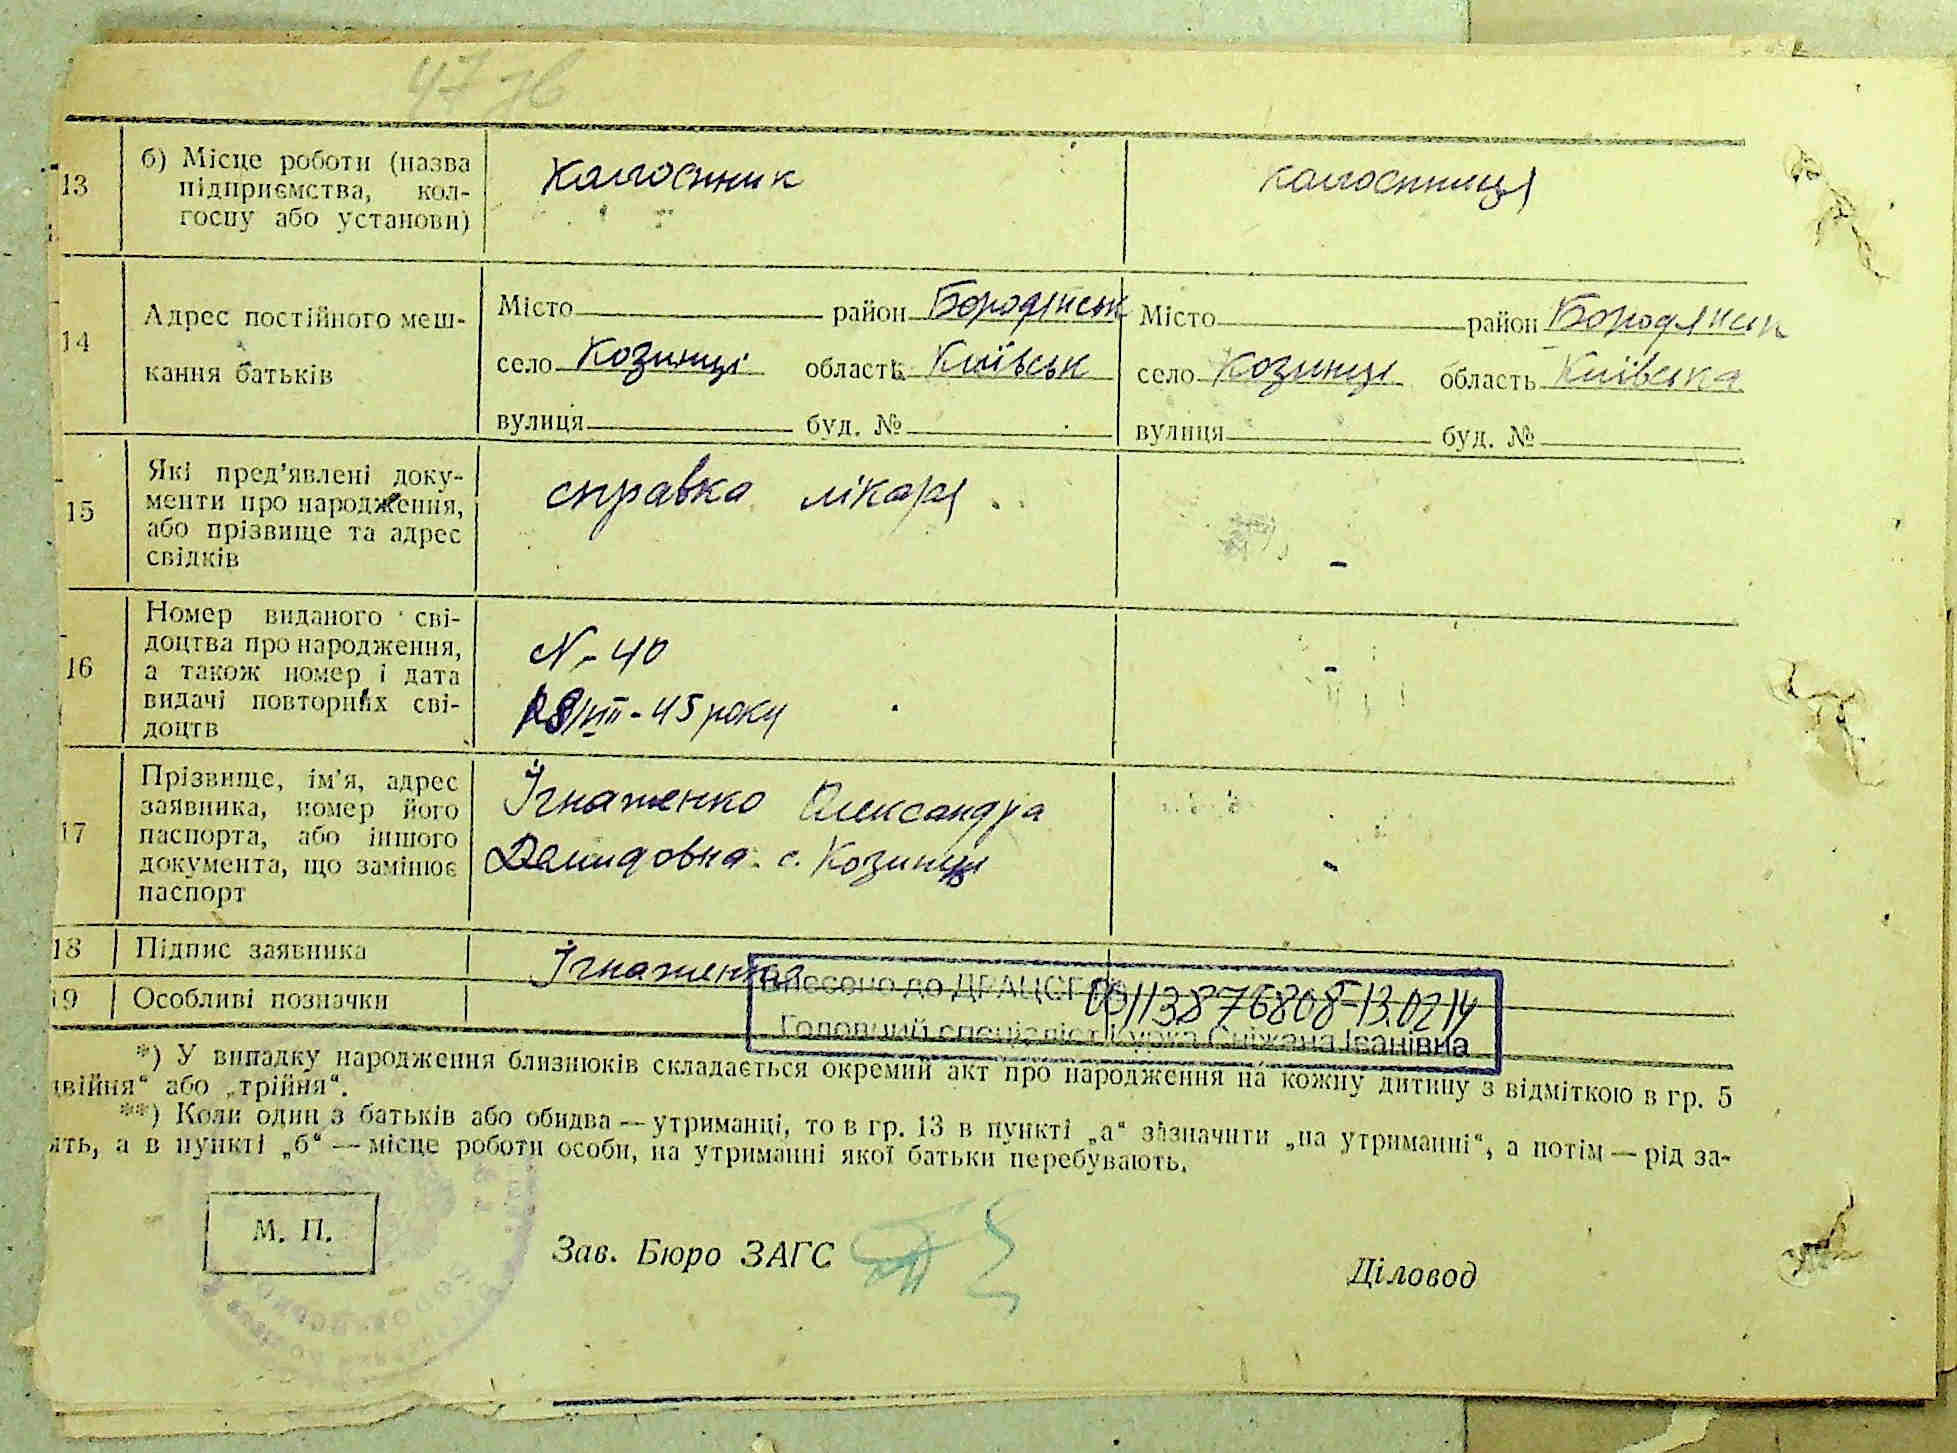 47 зв
13 б) Місце роботи (назва підприємства, колгоспу або установи) колгоспник колгоспниця
14 Адрес постійного мешкання батьків
Місто район Бородянськ Місто район Бородянськ
село Козинці область Київськ село Козинці область Київська
вулиця буд. № вулиця буд. №
15 Які пред'явлені доку-
менти про народження,
або прізвище та адрес
свідків
справка лікаря -
16 Номер виданого сві-
доцтва про народження,
а також номер і дата
видачі повторних сві-
доцтв
N-40 -
/VIII-45 року
17 Прізвище, ім'я, адрес
заявника, номер його
паспорта, або іншого
документа, що замінює
паспорт
Ігнатенко Олександра
Демидовна с. Козинці -
18 Підпис заявника Ігнатенко
19 Особливі позначки
Внесено до ДРАЦСГ 00113876808-13.02.14
Головний спеціаліст Бурка Сніжана Іванівна
*) У випадку народження близнюків складається окремий акт про народження на кожну дитину з відміткою в гр. 5
двійня" або „трійня".
**) Коли один з батьків або обидва — утриманці, то в гр. 13 в пункті „а" зазначити „на утриманні", а потім — рід за-
ять, а в пункті „б" — місце роботи особи, на утриманні якої батьки перебувають.
М. П.
Зав. Бюро ЗАГС
Діловод